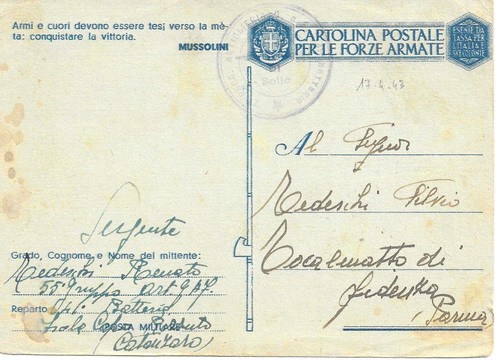 Armi e cuori devono essere tesi verso la mè-
ta: conquistare la vittoria.
MUSSOLINI
CARTOLINA POSTALE
PER LE FORZE ARMATE
ESENTE DA
TASSA PER
L'ITALIA E
SUE COLONIE
17-4-43
Al Signor
Medeschi Silvio
Cocalmatto di
Fidenza
Parma
Sergente
Grado, Cognome, e Nome del mittente:
Renato
55° Gruppo Art.
Reparto
Batteria
Isola Capo Rizzuto
POSTA MILITARE
Catanzaro